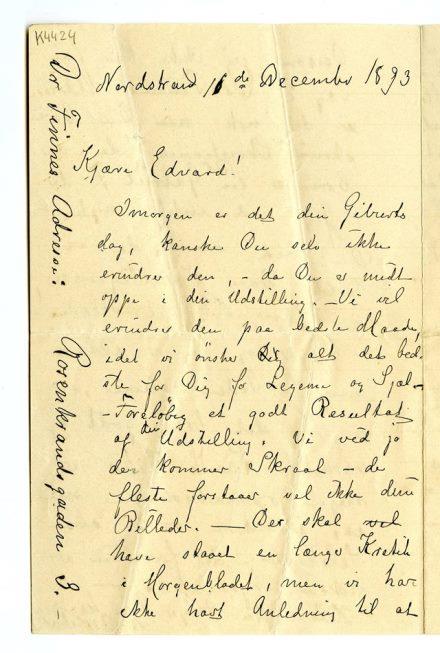 K4424
Nordstrand 11de December 1893
Kjære Edvard!
Imorgen er det din Geburts
dag, kanske Du selv ikke
erindrer den, – da Du er midt
oppe i din Udstilling. – Vi vil
erindre den paa bedste Maade,
idet vi önske Dig alt det bed-
ste for Dig for Legeme og Sjæl –
– Foreløbig et godt Resultat
af din Udstilling. Vi ved jo
der kommer Skraal – de
fleste forstaaer vel ikke dine
Billeder. — Der skal vel
have staaet en længe Kretik
i Morgenbladet, men vi har
ikke havt Anledning til at
Dr Finnes Adresse: Rosenkrandsgaden 9. –